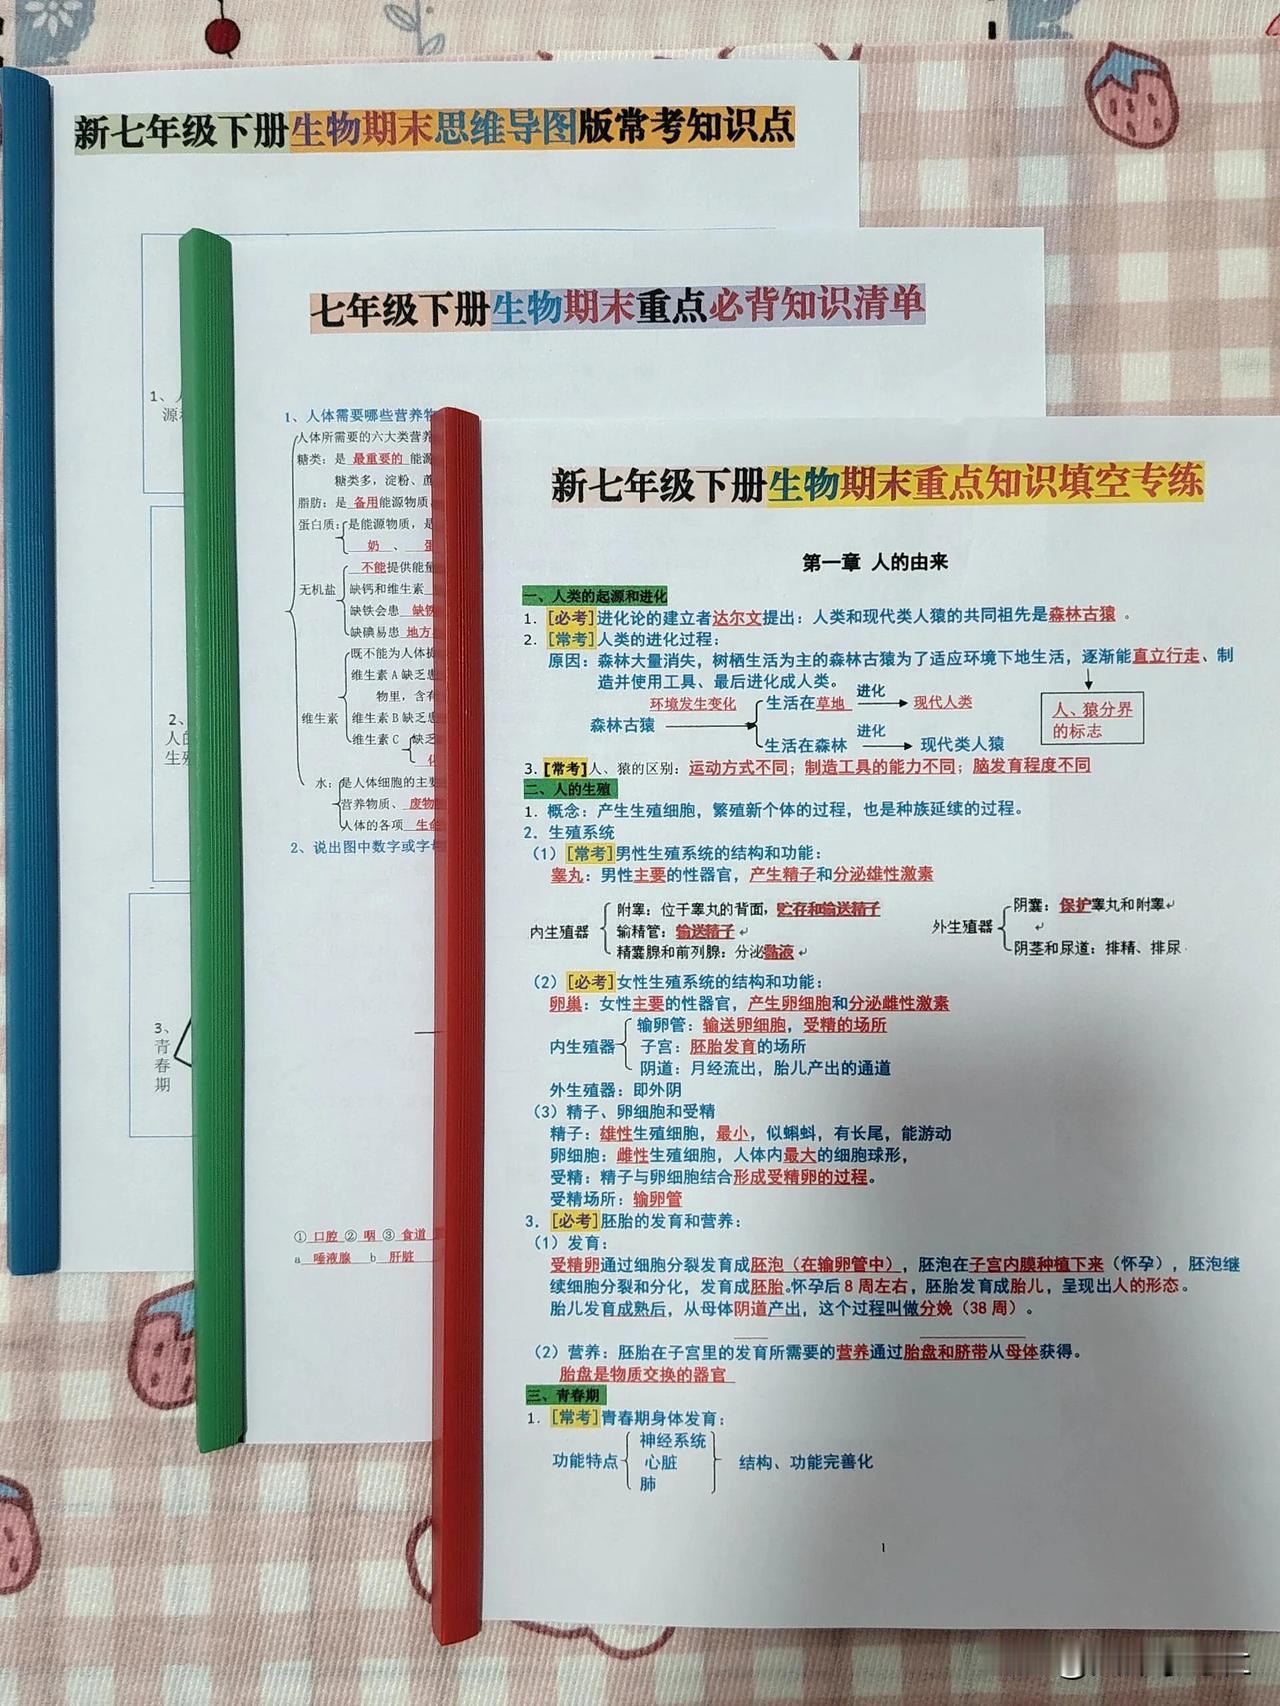 新七年级下册生物期末思维导图版常考知识点
1、人
源和
2、
人的
生殖
3、
青
春
期
七年级下册生物期末重点必背知识清单
1、人体需要哪些营养物
人体所需要的六大类营养
糖类：是 最重要的 能源
糖类多，淀粉、蔗
脂肪：是 备用能源物质
蛋白质：是能源物质，是
奶 、 蛋
无机盐
不能提供能量
缺钙和维生素
缺铁会患 缺铁
缺碘易患 地方
维生素
既不能为人体提
维生素 A 缺乏患
物里，含有
维生素 B 缺乏患
维生素 C 缺乏
水：是人体细胞的主要
营养物质、 废物
人体的各项 生命
2、说出图中数字或字母
① 口腔 ② 咽 ③ 食道
a 唾液腺 b 肝脏
新七年级下册生物期末重点知识填空专练
第一章 人的由来
一、人类的起源和进化
1. [必考]进化论的建立者达尔文提出：人类和现代类人猿的共同祖先是森林古猿 。
2. [常考]人类的进化过程：
原因：森林大量消失，树栖生活为主的森林古猿为了适应环境下地生活，逐渐能直立行走、制
造并使用工具、最后进化成人类。
森林古猿 环境发生变化 生活在草地 进化 现代人类
生活在森林 进化 现代类人猿
人、猿分界
的标志
3. [常考]人、猿的区别：运动方式不同；制造工具的能力不同；脑发育程度不同
二、人的生殖
1. 概念：产生生殖细胞，繁殖新个体的过程，也是种族延续的过程。
2. 生殖系统
（1）[常考]男性生殖系统的结构和功能：
睾丸：男性主要的性器官，产生精子和分泌雄性激素
内生殖器
附睾：位于睾丸的背面，贮存和输送精子
输精管：输送精子
精囊腺和前列腺：分泌黏液
外生殖器
阴囊：保护睾丸和附睾
阴茎和尿道：排精、排尿
（2）[必考]女性生殖系统的结构和功能：
卵巢：女性主要的性器官，产生卵细胞和分泌雌性激素
内生殖器
输卵管：输送卵细胞，受精的场所
子宫：胚胎发育的场所
阴道：月经流出，胎儿产出的通道
外生殖器：即外阴
（3）精子、卵细胞和受精
精子：雄性生殖细胞，最小，似蝌蚪，有长尾，能游动
卵细胞：雌性生殖细胞，人体内最大的细胞球形，
受精：精子与卵细胞结合形成受精卵的过程。
受精场所：输卵管
3. [必考]胚胎的发育和营养：
（1）发育：
受精卵通过细胞分裂发育成胚泡（在输卵管中），胚泡在子宫内膜种植下来（怀孕），胚泡继
续细胞分裂和分化，发育成胚胎。怀孕后 8 周左右，胚胎发育成胎儿，呈现出人的形态。
胎儿发育成熟后，从母体阴道产出，这个过程叫做分娩（38 周）。
（2）营养：胚胎在子宫里的发育所需要的营养通过胎盘和脐带从母体获得。
胎盘是物质交换的器官
三、青春期
1. [常考]青春期身体发育：
功能特点
神经系统
心脏
肺
结构、功能完善化
1